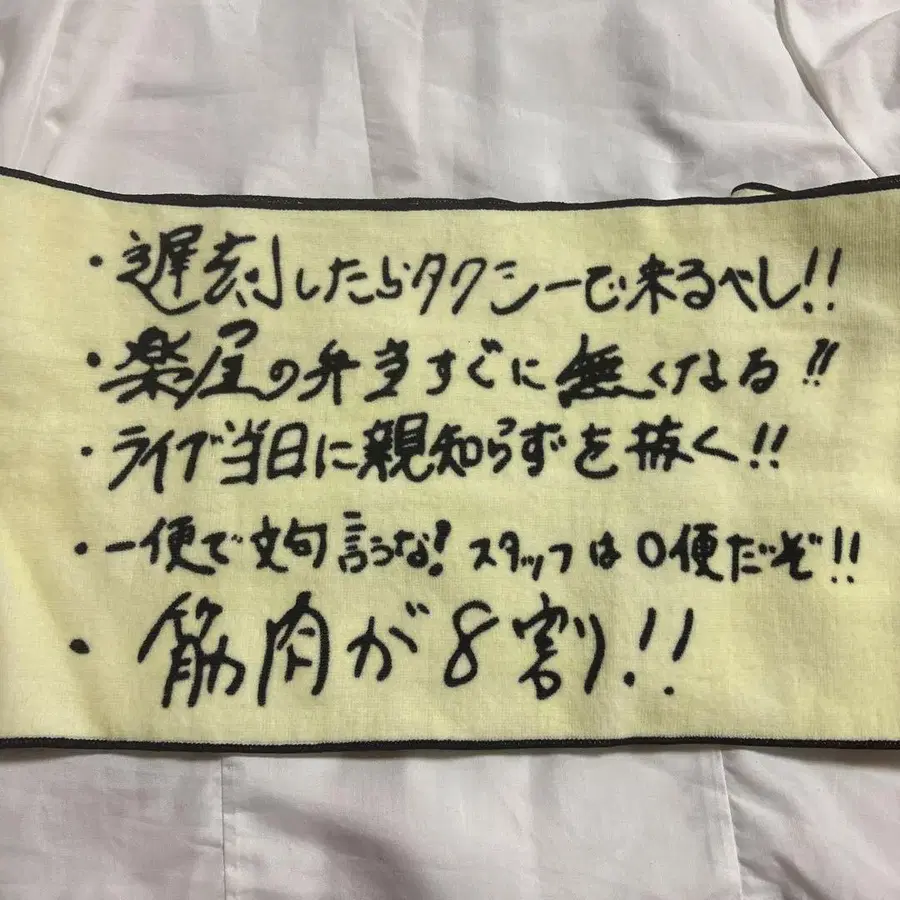 ・遅刻したらタクシーで来るべし!!
・楽屋の弁当すぐに無くなる!!
・ライブ当日に親知らずを抜く!!
・一便で文句言うな!スタッフは0便だぞ!!
・筋肉が8割!!